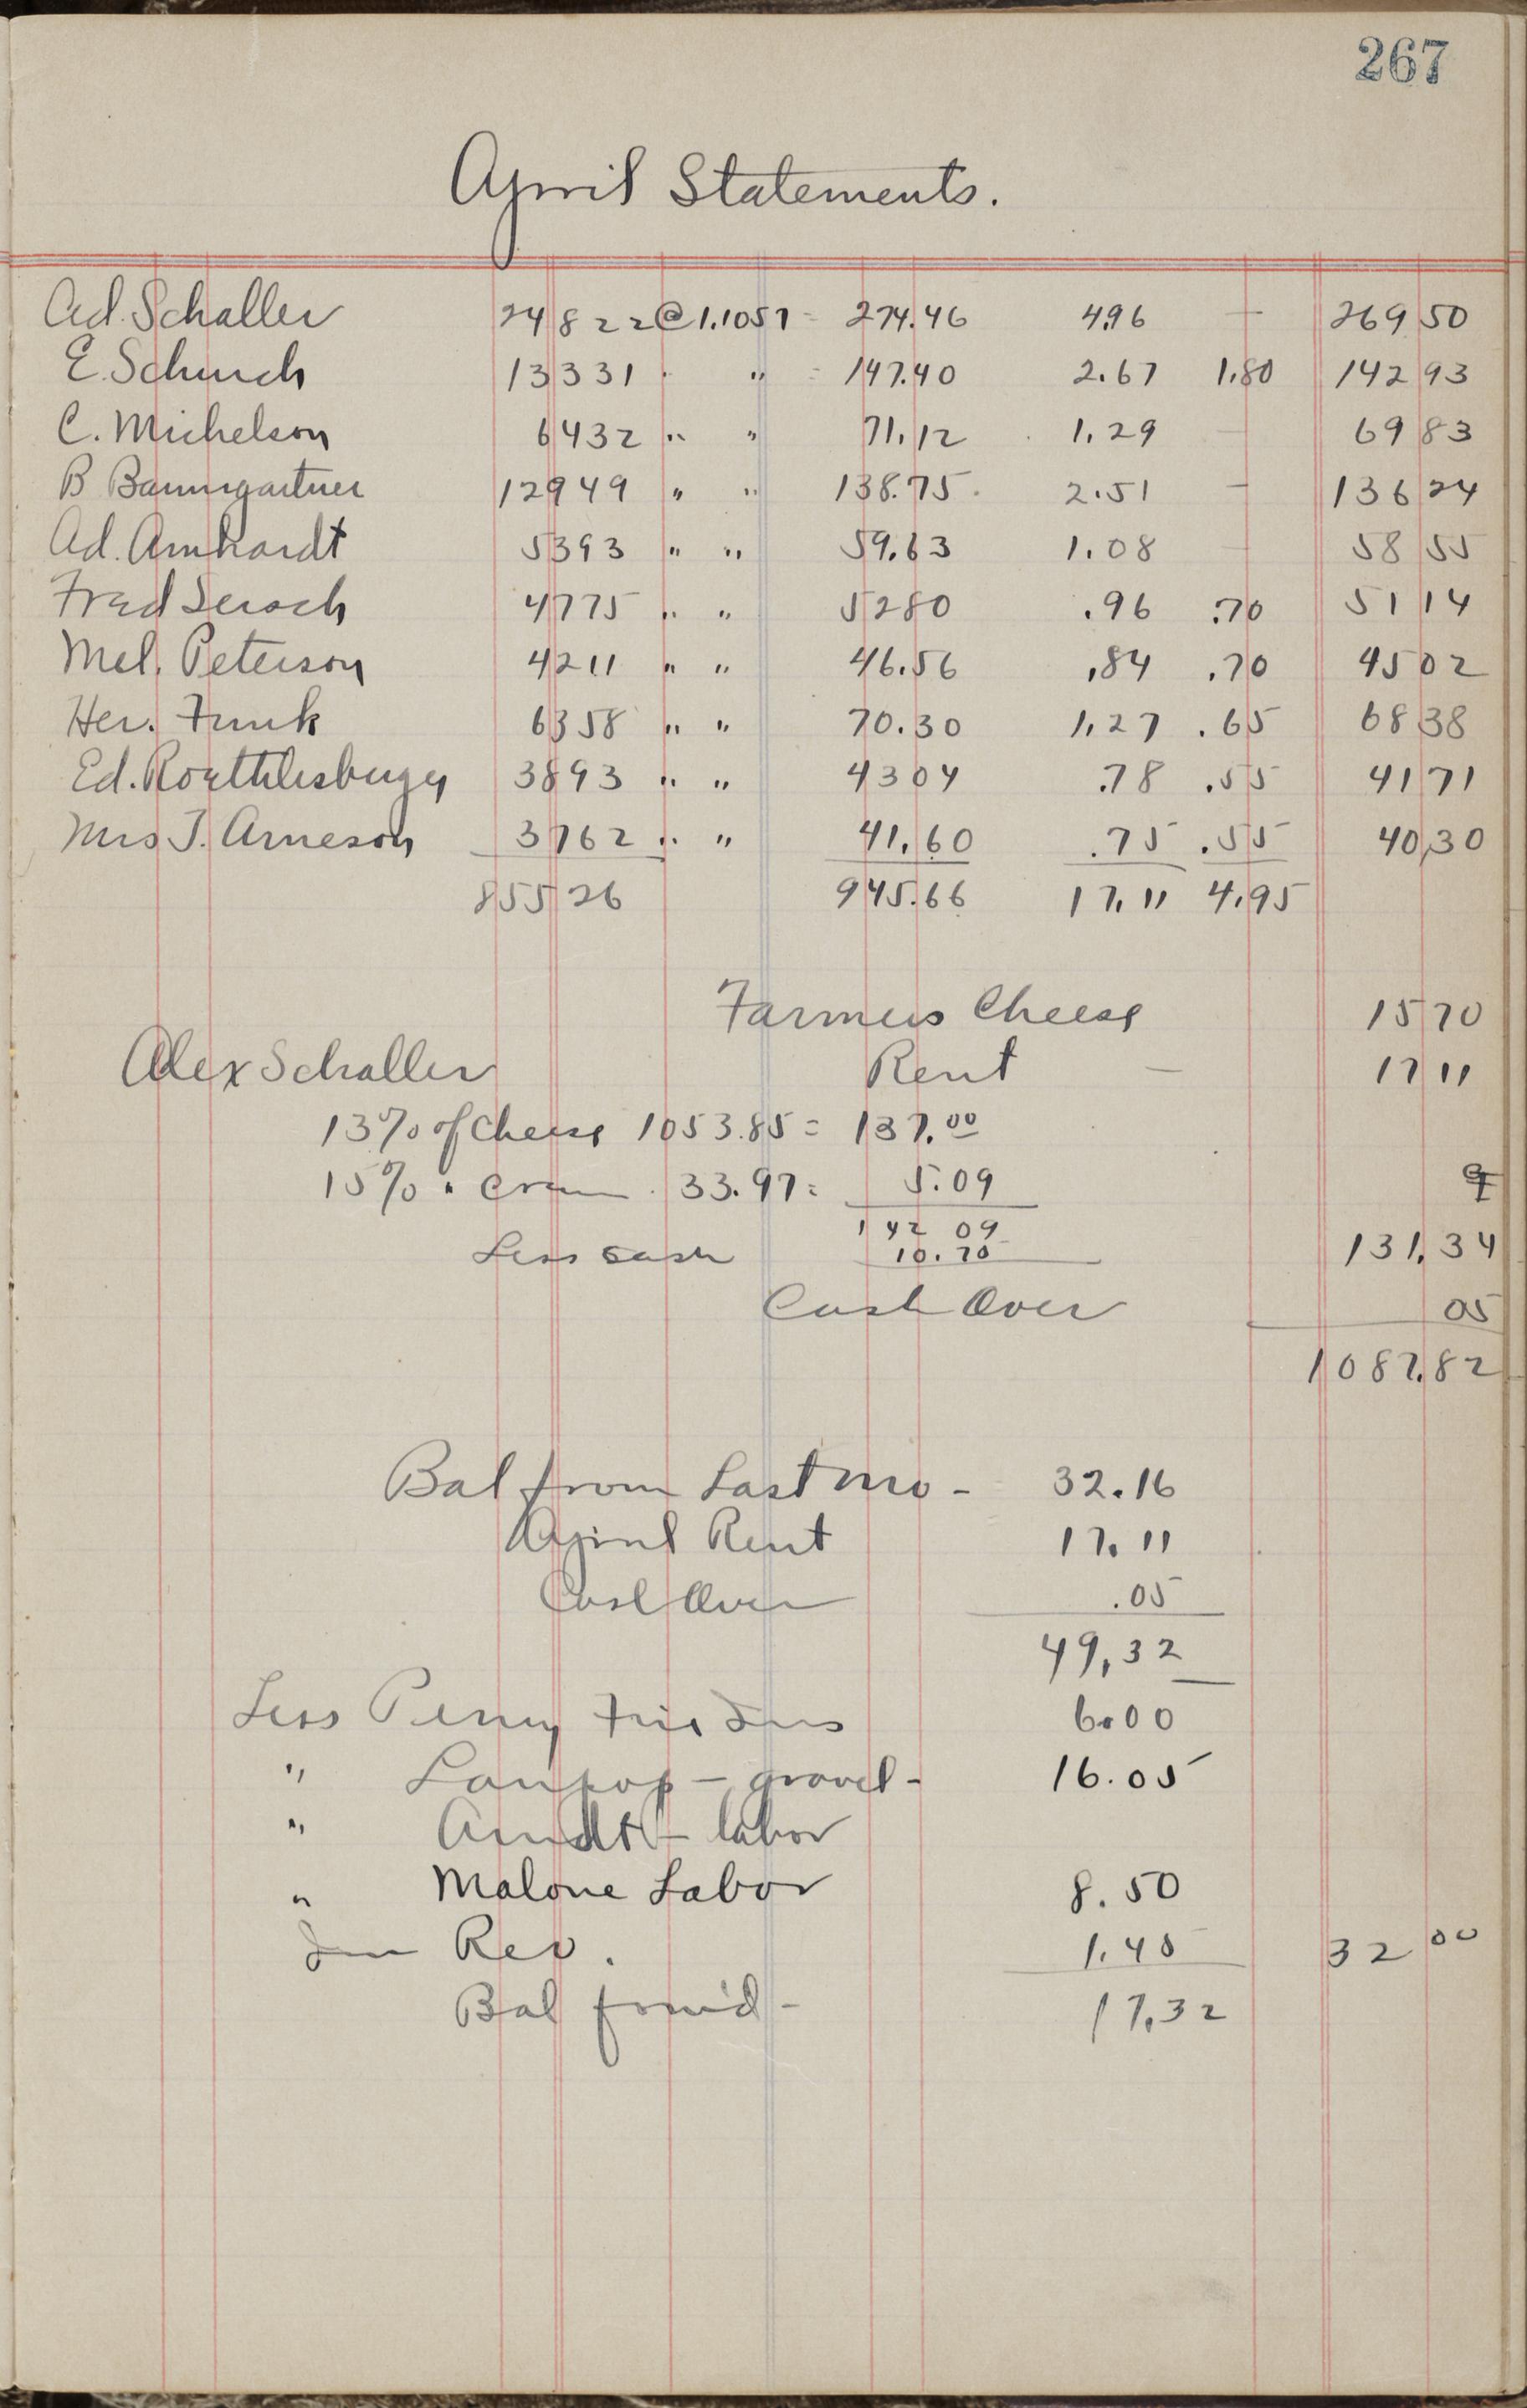 267
April Statements.
Ad. Schaller 24822 @ 1.1057 = 274.46 4.96 — 269 50
E. Schurch 13331 " " = 147.40 2.67 1.80 142 93
C. Michelson 6432 " " 71.12 1.29 — 69 83
B Baumgartner 12949 " " 138.75 2.51 — 136 24
Ad. Arnhardt 5393 " " 59.63 1.08 — 58 55
Fred 4775 " " 52 80 .96 .70 51 14
Mel. Peterson 4211 " " 46.56 .84 .70 45 02
Her. Funk 6358 " " 70.30 1.27 .65 68 38
Ed. Roethlisberger 3893 " " 43 04 .78 .55 41 71
Mrs J. Arneson 3762 " " 41.60 .75 .55 40 30
85526 945.66 17.11 4.95
Farmers Cheese 15 70
Alex Schaller Rent — 17 11
13% of Cheese 1053.85 = 137.00
15% " Cream 33.97 = 5.09
142 09
Less cash 10.70 131.34
Cash Over 05
1087.82
Bal from Last mo - 32.16
April Rent 17.11
Cash Over .05
49.32
Less Perry Fire Ins 6.00
" - gravel - 16.05
" - labor
" Malone Labor 8.50
Rev. 1.45 32 00
Bal forw'd - 17.32